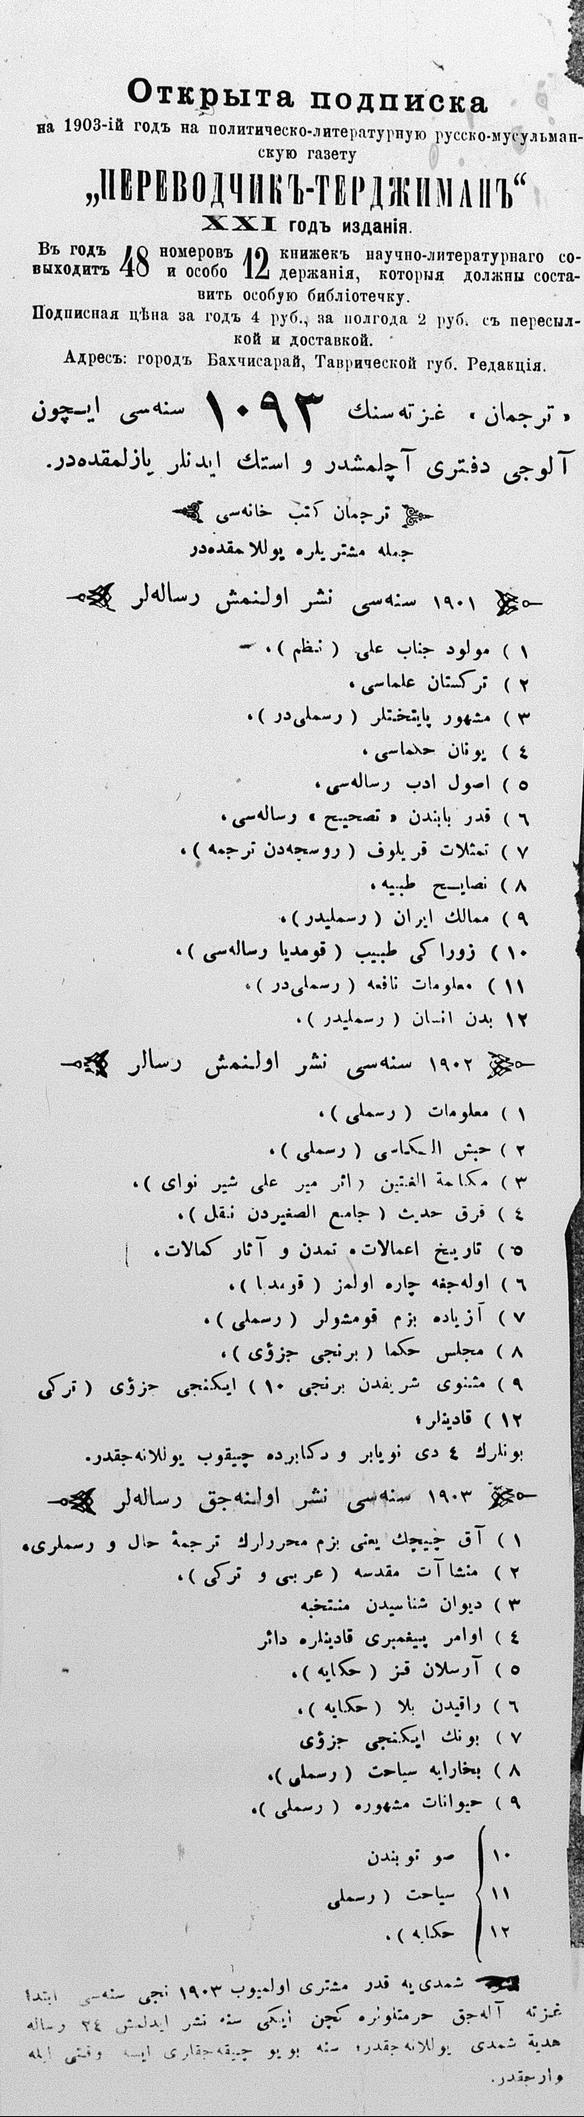 Открыта подписка
на 1903-ій годъ на политическо-литературную русско-мусульман-
скую газету
„ПЕРЕВОДЧИКЪ-ТЕРДЖИМАНЪ“
XXI годъ изданія.
Въ годъ выходитъ 48 номеровъ и особо 12 книжекъ научно-литературнаго со-
держанія, которыя должны соста-
вить особую библіотечку.
Подписная цѣна за годъ 4 руб., за полгода 2 руб. съ пересыл-
кой и доставкой.
Адресъ: городъ Бахчисарай, Таврической губ. Редакція.
« ترجمان » غزته‌سنك ١٠٩٣ سنه‌سی ایچون
آلوجی دفتری آچلمشدر و استك ایدنلر یازلمقده‌در.
ترجمان كتب خانه‌سی
جمله مشتریلره یوللامقده‌در
١٩٠١ سنه‌سی نشر اولنمش رساله‌لر
١ ) مولود جناب علی ( نظم ).
٢ ) تركستان علماسی.
٣ ) مشهور پایتختلر ( رسملی‌در ).
٤ ) یونان حكماسی.
٥ ) اصول ادب رساله‌سی.
٦ ) قدر بابندن « تصحیح » رساله‌سی.
٧ ) تمثلات قریلوف ( روسجه‌دن ترجمه ).
٨ ) نصایح طبیه.
٩ ) ممالك ایران ( رسملیدر ).
١٠ ) زوراكی طبیب ( قومدیا رساله‌سی ).
١١ ) معلومات نافعه ( رسملی‌در ).
١٢ بدن انسان ( رسملیدر ).
١٩٠٢ سنه‌سی نشر اولنمش رسالر
١ ) معلومات ( رسملی ).
٢ ) حبش ( رسملی ).
٣ ) میر علی شیر نوای ).
٤ ) فرق حدیث ( جامع الصغیردن نقل ).
٥ ) تاریخ اعمالات. تمدن و آثار كمالات.
٦ ) اوله‌جغه چاره اولمز ( قومدیا ).
٧ ) آزیاده بزم قومشولر ( رسملی ).
٨ ) مجلس حكما ( برنجی جزؤی ).
٩ ) مثنوی شریفدن برنجی ١٠ ) ایكنجی جزؤی ( تركی
١٢ ) قادینلر؛
بونلرك ٤ دی نویابر و دكابرده چیقوب یوللانه‌جقدر.
١٩٠٣ سنه‌سی نشر اولنه‌جق رساله‌لر
١ ) آق چیچك یعنی بزم محررلرك ترجمۀ حال و رسملری.
٢ ) منشاآت مقدسه ( عربی و تركی ).
٣ ) دیوان شناسیدن منتخبه
٤ ) اوامر پیغمبری قادینلره دائر
٥ ) آرسلان قز ( حكایه ).
٦ ) راقیدن بلا ( حكایه ).
٧ ) بونك ایكنجی جزؤی
٨ ) بخارایه سیاحت ( رسملی ).
٩ ) حیوانات مشهوره ( رسملی ).
١٠ صو توبندن
١١ سیاحت ( رسملی
١٢ حكایه ).
شمدی‌یه قدر مشتری اولمیوب ١٩٠٣ نجی سنه‌سی ابتدا
غزته آله‌جق حرمتلولره كچن ایكی سنه نشر ایدلمش ٢٤ رساله
هدیة شمدی یوللانه‌جقدر؛ سنه بویو چیقه‌جقلری ایسه وقتی ایله
وارجقدر.